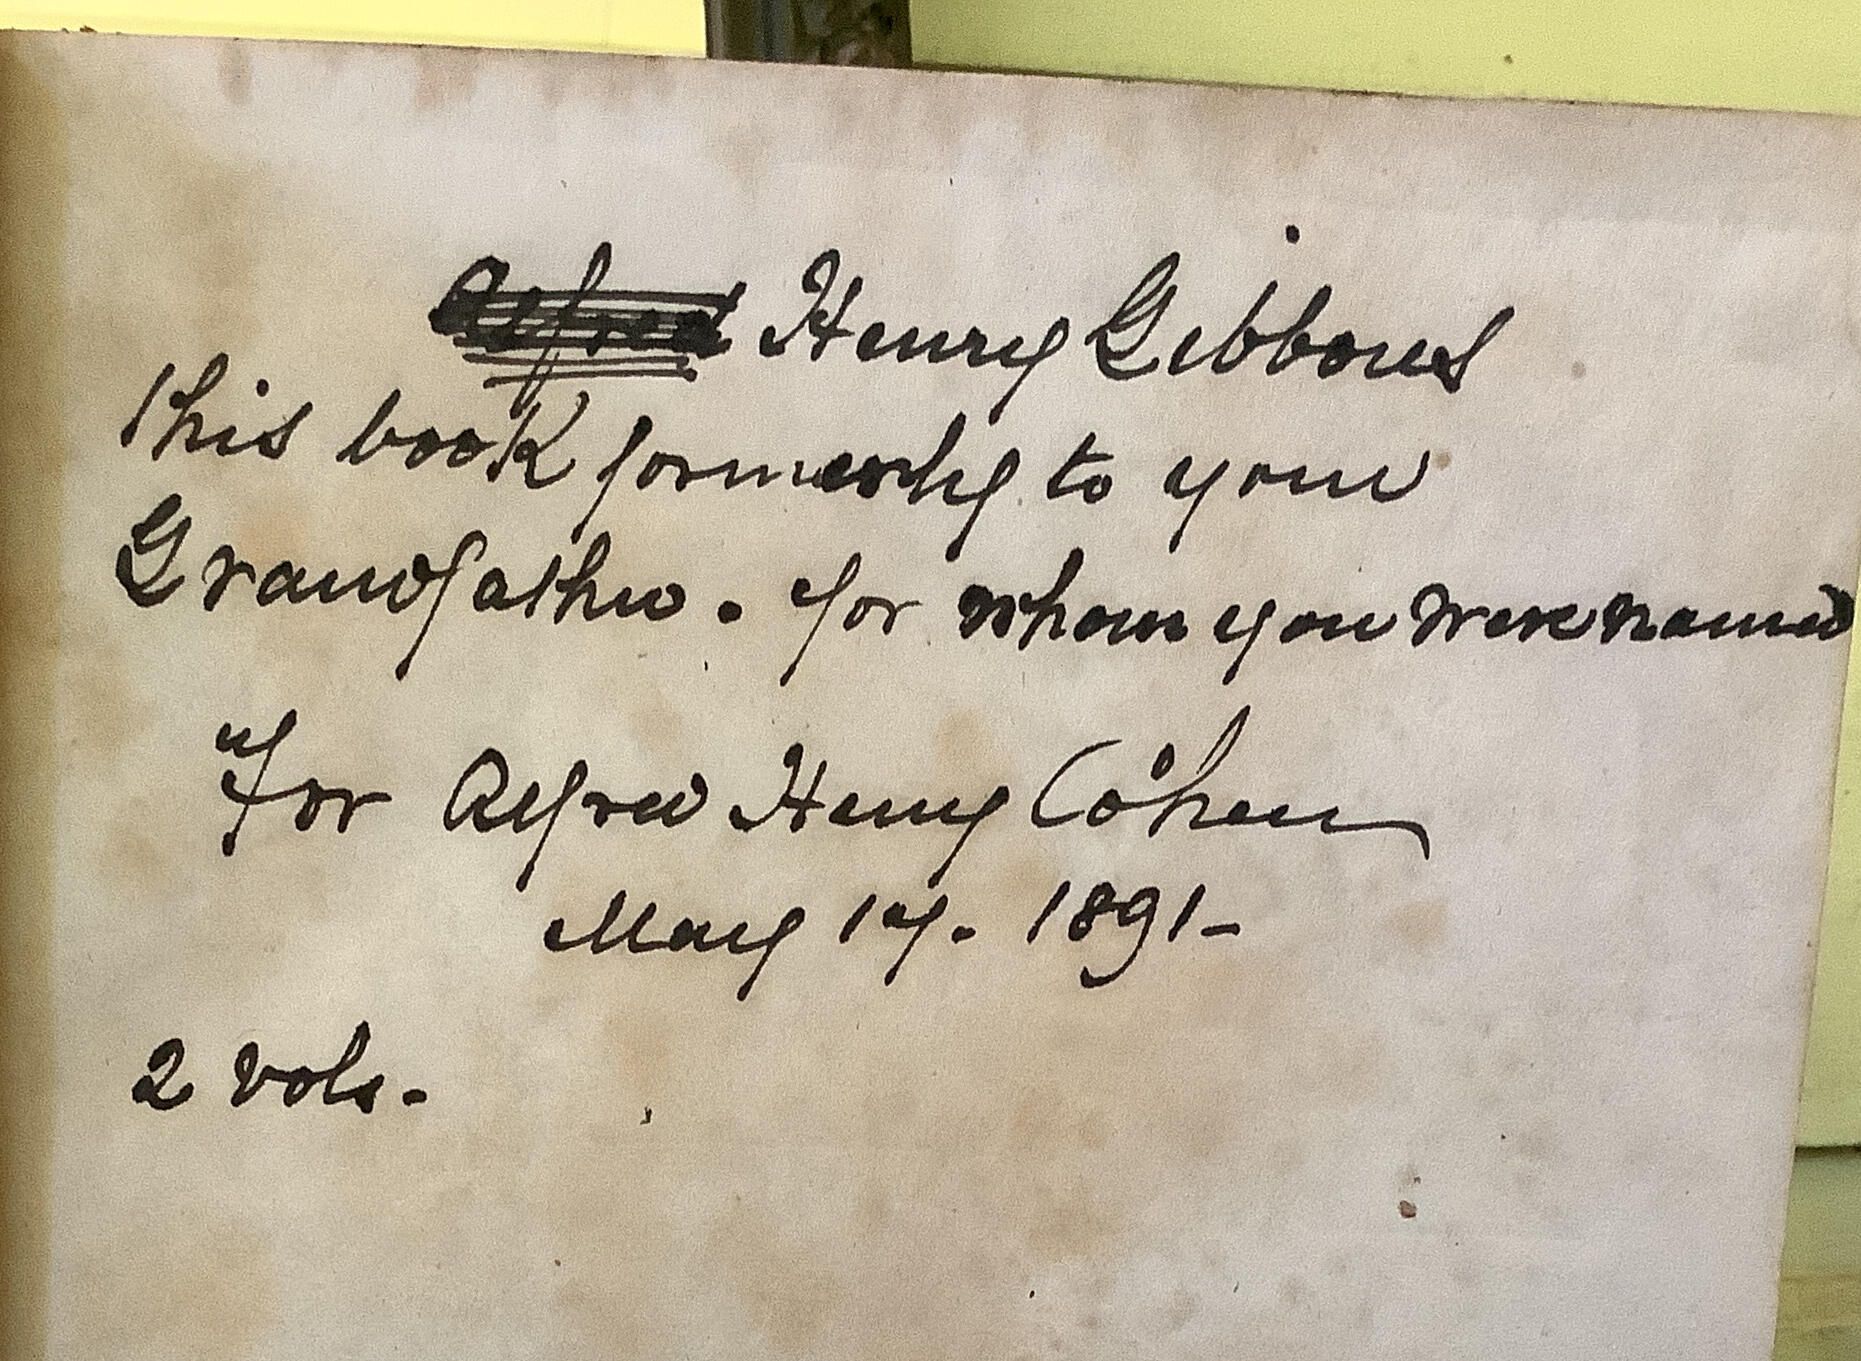 Alfred Henry Gibbons
This book formerly to your
Grandfather. for whom you were named
For Alfred Henry Cohen
May 17. 1891-
2 vols.